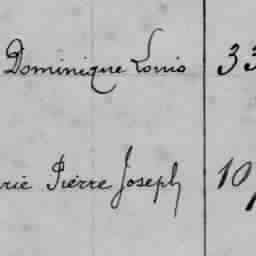 Dominique Louis 33
rie Pierre Joseph 10